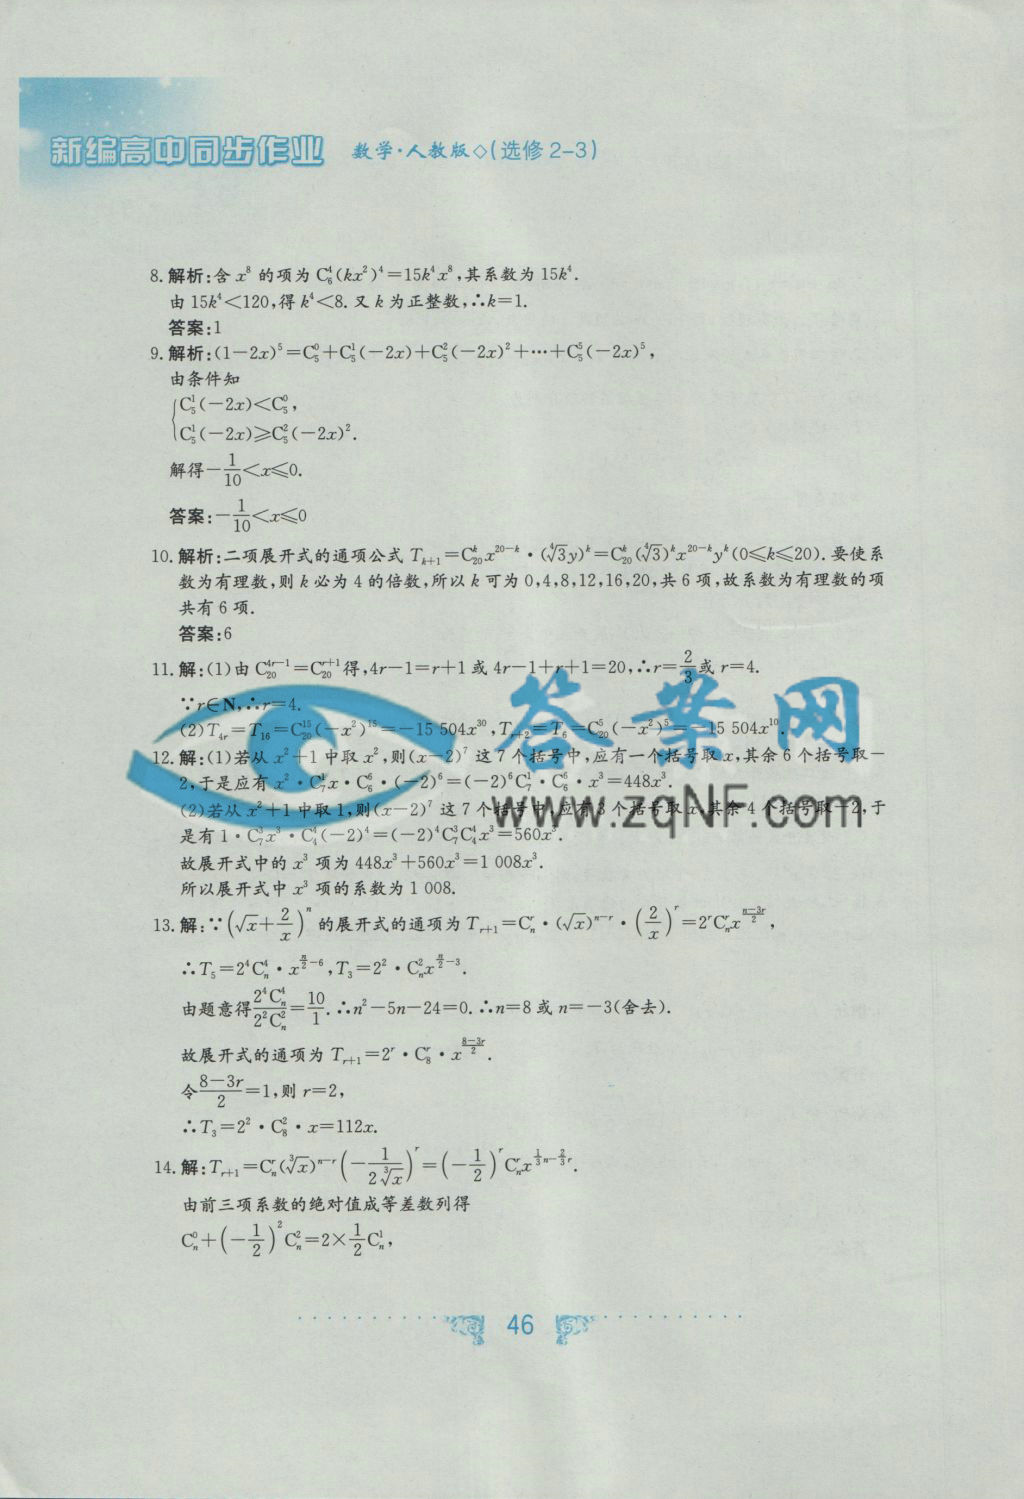 新编高中同步作业 数学·人教版◇(选修2-3)
8.解析:含 x⁸ 的项为 C₆⁴(kx²)⁴=15k⁴x⁸,其系数为 15k⁴.
由 15k⁴<120,得 k⁴<8.又 k 为正整数,∴k=1.
答案:1
9.解析:(1-2x)⁵=C₅⁰+C₅¹(-2x)+C₅²(-2x)²+…+C₅⁵(-2x)⁵,
由条件知
{C₅¹(-2x)<C₅⁰,
C₅¹(-2x)≥C₅²(-2x)².
解得-1/10<x≤0.
答案:-1/10<x≤0
10.解析:二项展开式的通项公式 Tₖ₊₁=C₂₀ᵏx²⁰⁻ᵏ·(⁴√3y)ᵏ=C₂₀ᵏ(⁴√3)ᵏx²⁰⁻ᵏyᵏ(0≤k≤20).要使系
数为有理数,则 k 必为 4 的倍数,所以 k 可为 0,4,8,12,16,20,共 6 项,故系数为有理数的项
共有 6 项.
答案:6
11.解:(1)由 C₂₀⁴ʳ⁻¹=C₂₀ʳ⁺¹得,4r-1=r+1 或 4r-1+r+1=20,∴r=2/3或 r=4.
∵r∈N,∴r=4.
(2)T₄ᵣ=T₁₆=C₂₀¹⁵(-x²)¹⁵=-15 504x³⁰,Tᵣ₊₂=T₆=C₂₀⁵(-x²)⁵=-15 504x¹⁰.
12.解:(1)若从 x²+1 中取 x²,则(x-2)⁷ 这 7 个括号中,应有一个括号取 x,其余 6 个括号取-
2,于是应有 x²·C₇¹x·C₆⁶·(-2)⁶=(-2)⁶C₇¹·C₆⁶·x³=448x³.
(2)若从 x²+1 中取 1,则(x-2)⁷ 这 7 个括号中,应有 3 个括号取 x,其余 4 个括号取-2,于
是有 1·C₇³x³·C₄⁴(-2)⁴=(-2)⁴C₇³C₄⁴x³=560x³.
故展开式中的 x³ 项为 448x³+560x³=1 008x³.
所以展开式中 x³ 项的系数为 1 008.
13.解:∵(√x+2/x)ⁿ 的展开式的通项为 Tᵣ₊₁=Cₙʳ·(√x)ⁿ⁻ʳ·(2/x)ʳ=2ʳCₙʳx^((n-3r)/2),
∴T₅=2⁴Cₙ⁴·x^(n/2-6),T₃=2²·Cₙ²x^(n/2-3).
由题意得2⁴Cₙ⁴/2²Cₙ²=10/1.∴n²-5n-24=0.∴n=8 或 n=-3(舍去).
故展开式的通项为 Tᵣ₊₁=2ʳ·C₈ʳ·x^((8-3r)/2).
令(8-3r)/2=1,则 r=2,
∴T₃=2²·C₈²·x=112x.
14.解:Tᵣ₊₁=Cₙʳ(³√x)ⁿ⁻ʳ(-1/(2³√x))ʳ=(-1/2)ʳCₙʳx^(1/3n-2/3r).
由前三项系数的绝对值成等差数列得
Cₙ⁰+(-1/2)²Cₙ²=2×1/2Cₙ¹,
46
答案网
www.zqNF.com